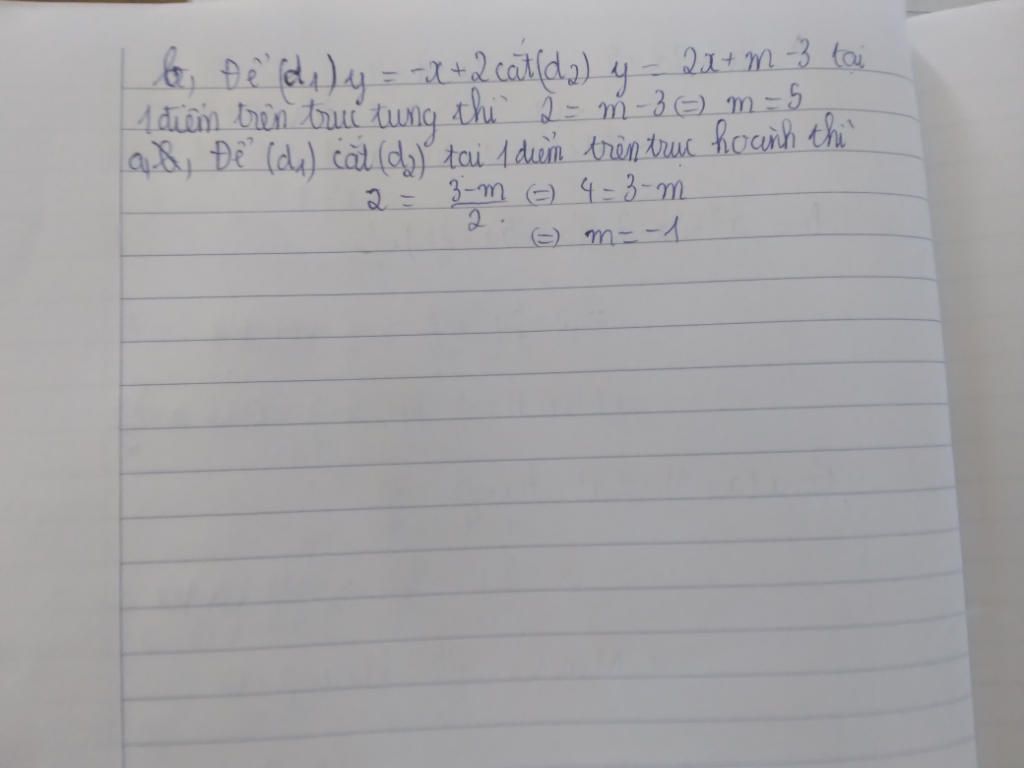 b, Để (d1) y = -x+2 cắt (d2) y = 2x+m-3 tại
1 điểm trên trục tung thì 2 = m-3 (=) m = 5
a, Để (d1) cắt (d2) tại 1 điểm trên trục hoành thì
2 = (3-m)/2 (=) 4 = 3-m
(=) m = -1